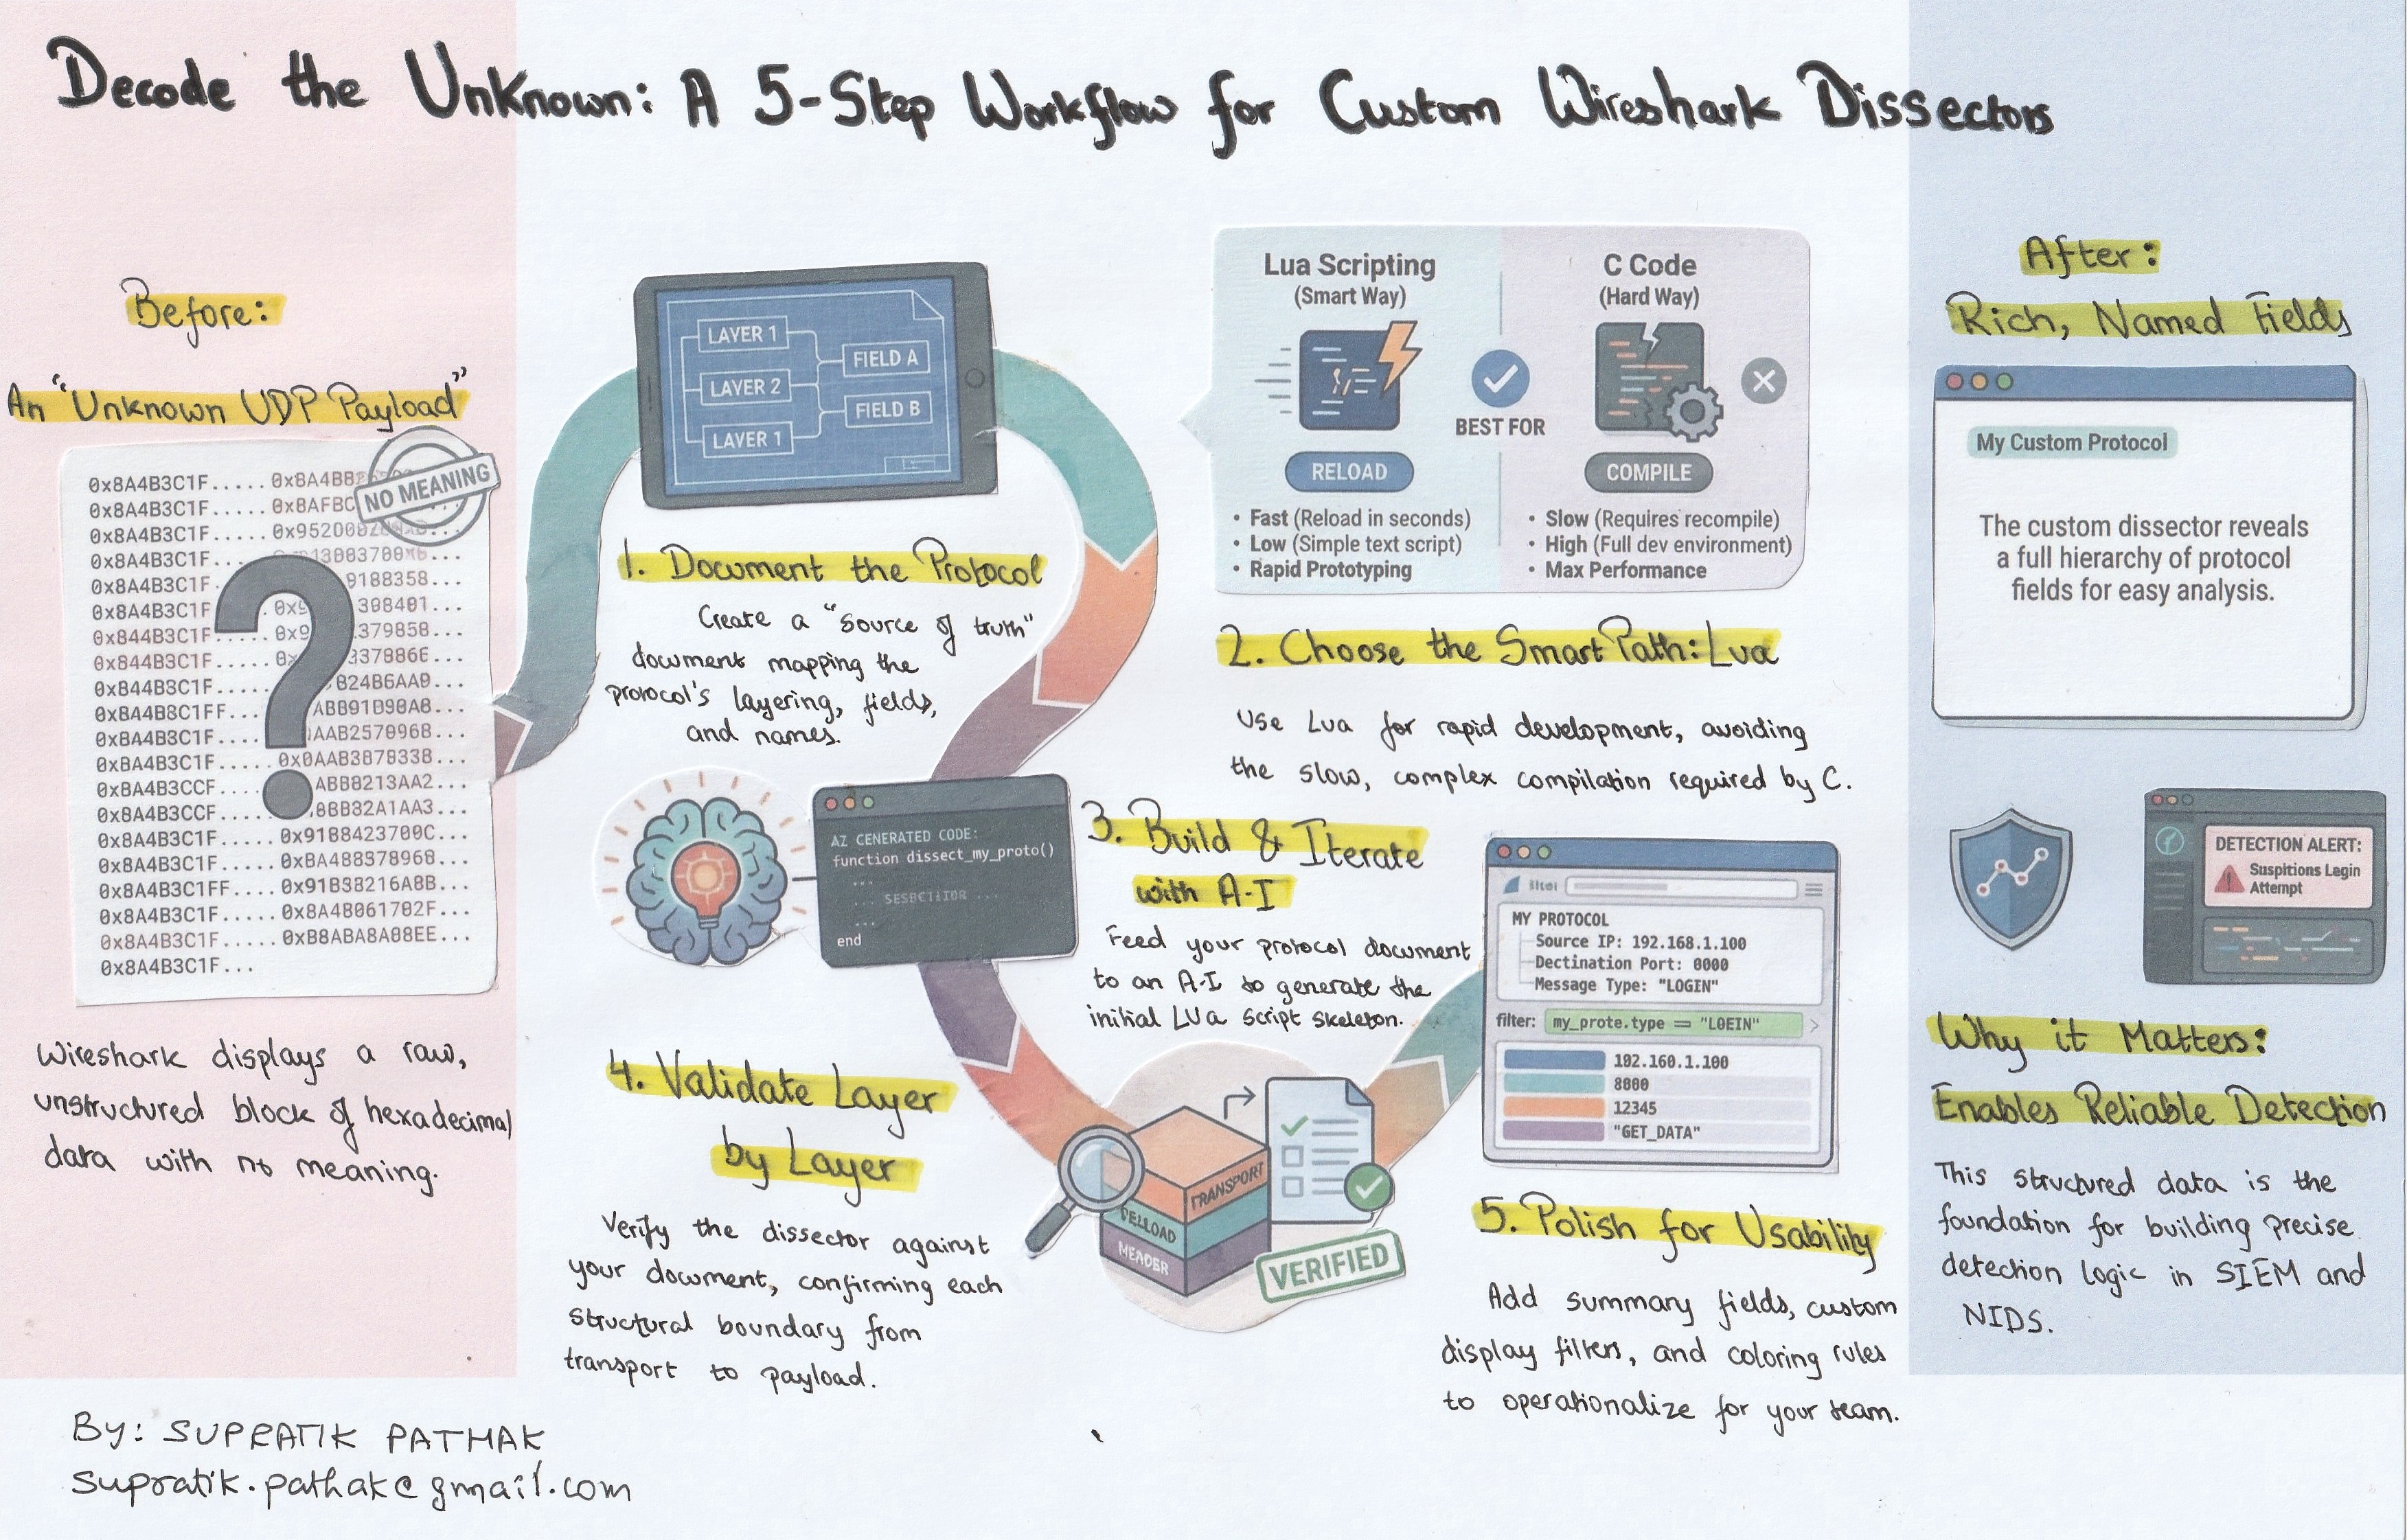 Decode the Unknown: A 5-Step Workflow for Custom Wireshark Dissectors
Before:
An "Unknown UDP Payload"
NO MEANING
0x8A4B3C1F.....
0x8A4B3C1F.....
0x8A4B3C1F.....
0x8A4B3C1F.....
0x8A4B3C1F
0x8A4B3C1F
0x844B3C1F.....
0x844B3C1F.....
0x844B3C1F.....
0x8A4B8C1FF...
0x8A4B3C1F.....
0xBA4B3C1F.....
0x8A4B3CCF....
0x8A4B3CCF....
0x8A4B3C1F.....0x91B8423709C...
0x8A4B3C1F.....0xBA488378968...
0x8A4B3C1FF....0x91B38216A8B...
0x8A4B3C1F.....0x8A4B061702F...
0x8A4B3C1F.....0xB8ABA8A08EE...
0x8A4B3C1F...
Wireshark displays a raw,
unstructured block of hexadecimal
data with no meaning.
LAYER 1
LAYER 2
LAYER 1
FIELD A
FIELD B
1. Document the Protocol
Create a "source of truth"
document mapping the
protocol's layering, fields,
and names.
Lua Scripting
(Smart Way)
RELOAD
• Fast (Reload in seconds)
• Low (Simple text script)
• Rapid Prototyping
BEST FOR
C Code
(Hard Way)
COMPILE
• Slow (Requires recompile)
• High (Full dev environment)
• Max Performance
2. Choose the Smart Path: Lua
Use Lua for rapid development, avoiding
the slow, complex compilation required by C.
AZ CENERATED CODE:
function dissect_my_proto()
...
...
end
3. Build & Iterate
with A-I
Feed your protocol document
to an A-I to generate the
initial LUa script skeleton.
4. Validate Layer
by Layer
Verify the dissector against
your document, confirming each
structural boundary from
transport to payload.
TRANSPORT
PELLOAD
MEADER
VERIFIED
MY PROTOCOL
Source IP: 192.168.1.100
Dectination Port: 8000
Message Type: "LOGIN"
filter: my_prote.type == "L0EIN"
192.160.1.100
8000
12345
"GET_DATA"
5. Polish for Usability
Add summary fields, custom
display filters, and coloring rules
to operationalize for your team.
After:
Rich, Named Fields
My Custom Protocol
The custom dissector reveals
a full hierarchy of protocol
fields for easy analysis.
DETECTION ALERT:
Suspitions Legin
Attempt
Why it Matters:
Enables Reliable Detection
This structured data is the
foundation for building precise
detection logic in SIEM and
NIDS.
By: SUPRATIK PATHAK
supratik.pathak@gmail.com